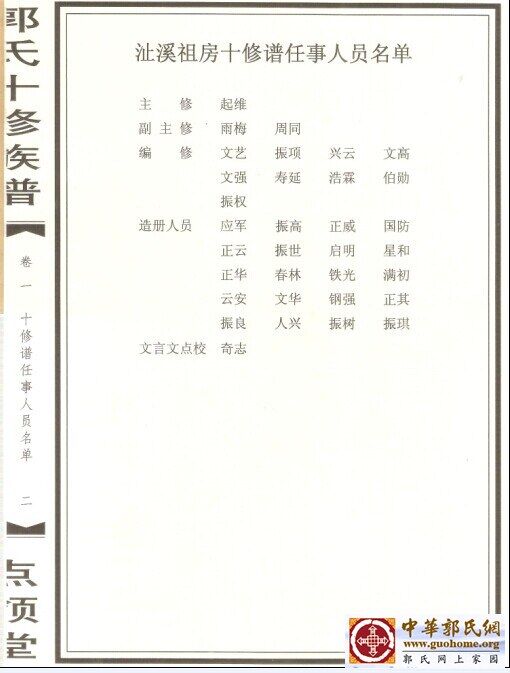 沚溪祖房十修谱任事人员名单
主 修 起维
副主修 雨梅 周同
编 修 文艺 振项 兴云 文高
文强 寿延 浩霖 伯勋
振权
造册人员 应军 振高 正威 国防
正云 振世 启明 星和
正华 春林 铁光 满初
云安 文华 钢强 正其
振良 人兴 振树 振琪
文言文点校 奇志
郭氏十修族普
卷一 十修谱任事人员名单 二
点颁堂
中華郭氏網
www.guohome.org
郭氏网上家园